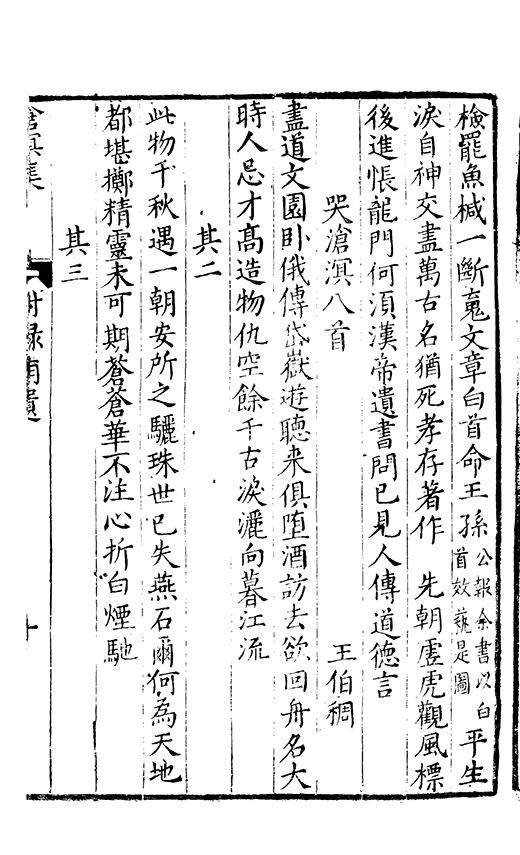 檢罷魚椷一斷䰟文章白首命王孫公報余書以白首效藐是圖平生
淚自神交盡萬古名猶死孝存著作　先朝虛虎觀風標
後進悵龍門何須漢帝遺書問已見人傳道德言
哭滄溟八首　王伯稠
盡道文園卧俄傳岱嶽遊聽来俱堕酒訪去欲回舟名大
時人忌才高造物仇空餘千古淚灑向暮江流
其二
此物千秋遇一朝安所之驪珠世已失燕石爾何為天地
都堪擲精靈未可期蒼蒼華不注心折白煙馳
其三